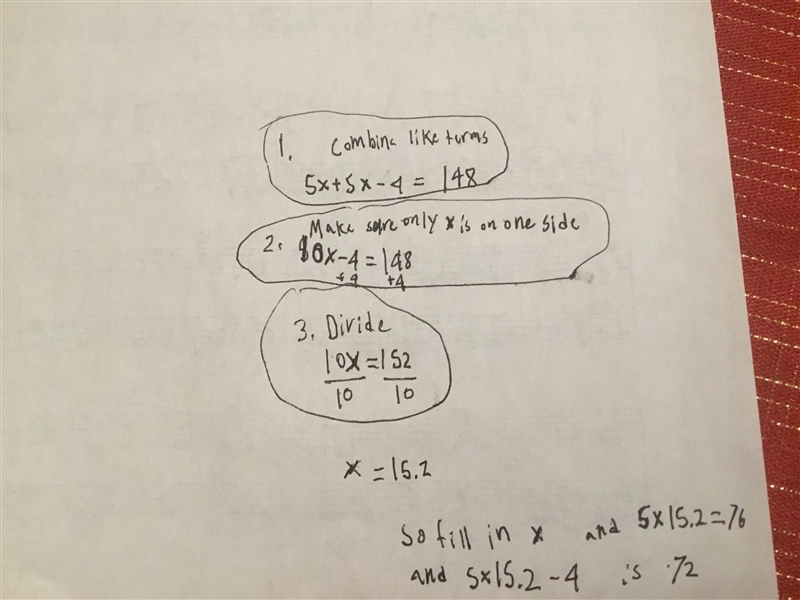 1. Combine like terms
5x+5x-4 = 148
Make sure only x is on one side
2. 10x-4=148
+4 +4
3. Divide
10x=152
10 10
x =15.2
So fill in x and 5x15.2=76
and 5x15.2-4 is 72